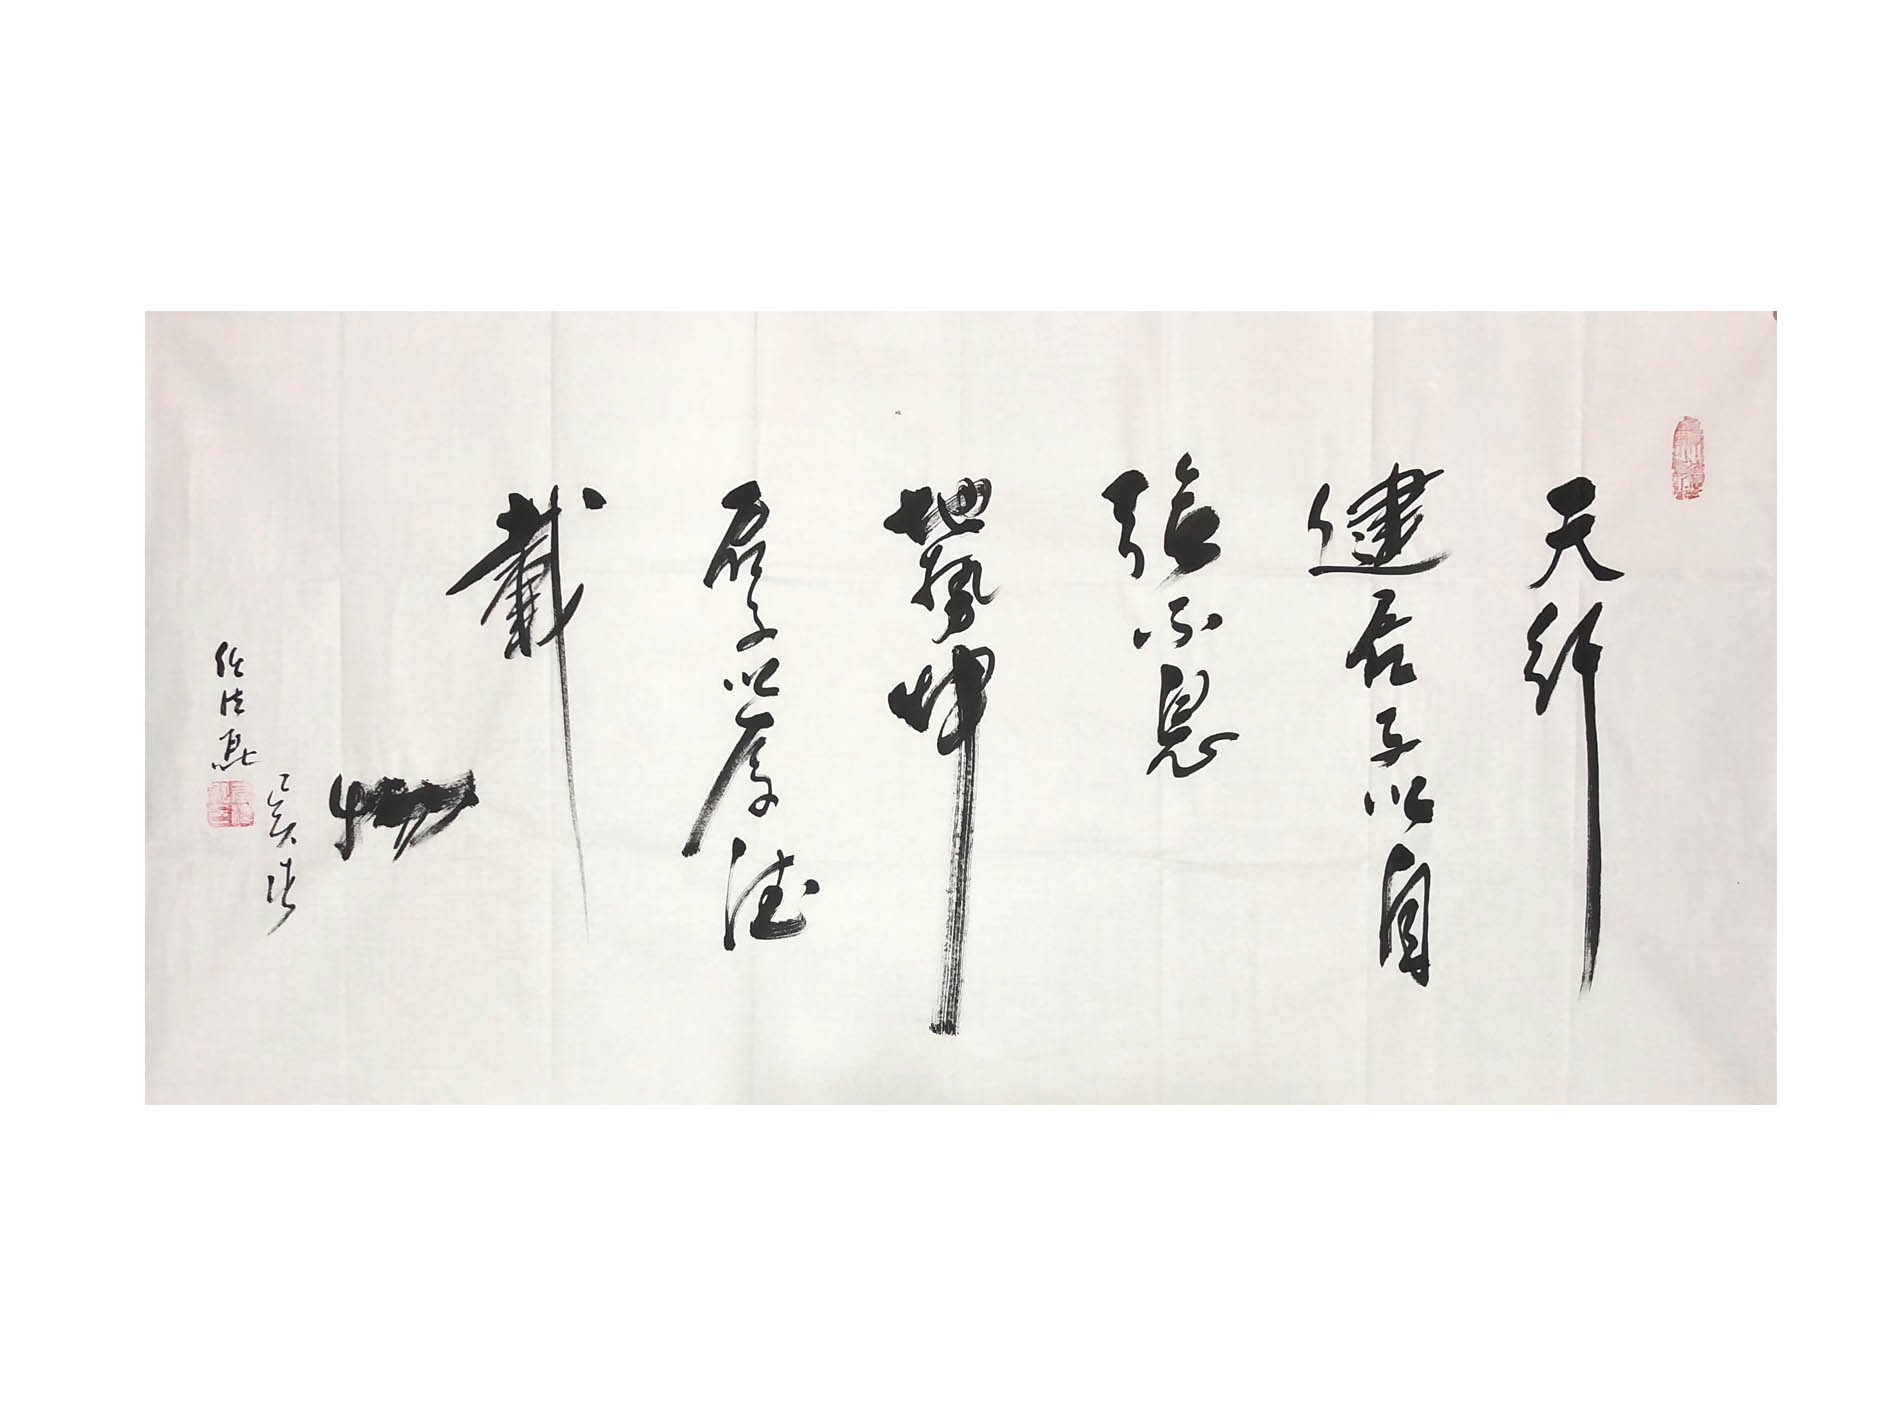 天行
健君子以自
强不息
地势坤
君子以厚德
载
物
己亥